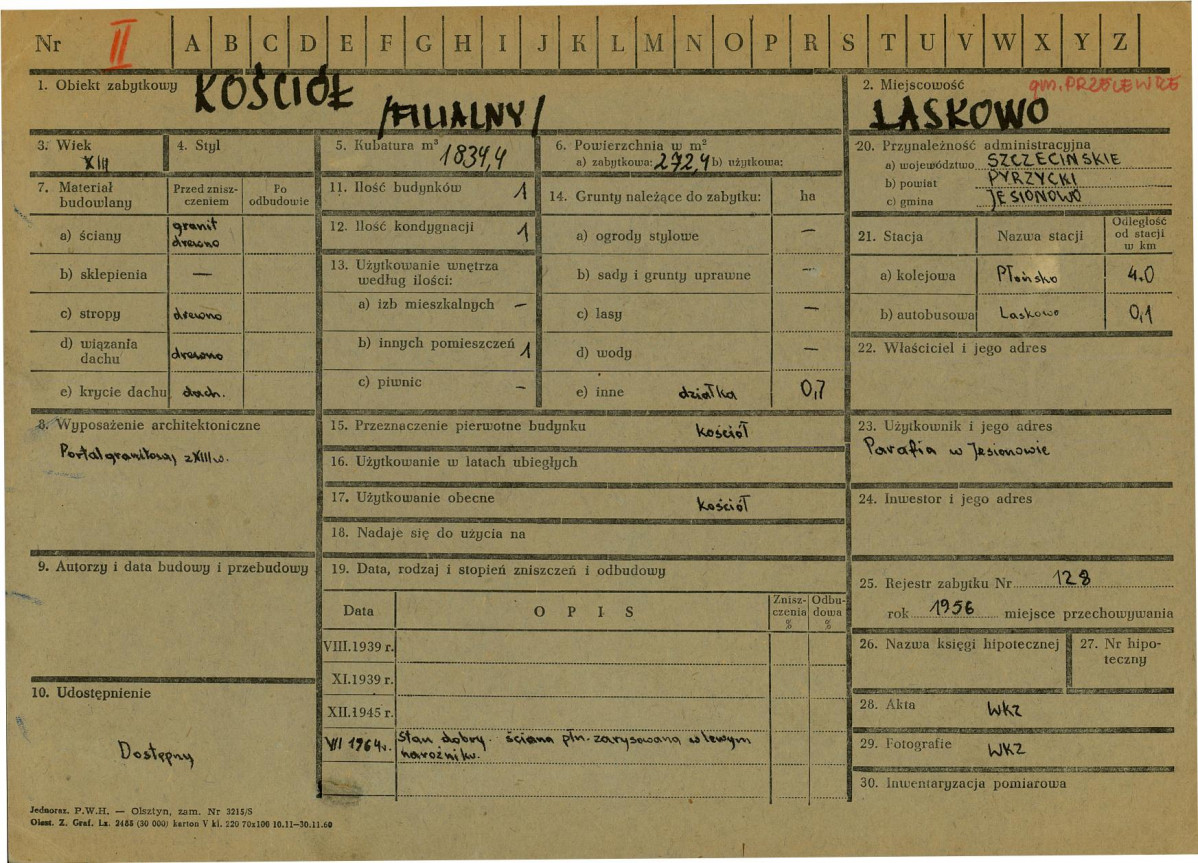 Nr II A B C D E F G H I J K L M N O P R S T U V W X Y Z
1. Obiekt zabytkowy KOŚCIÓŁ
/FILIALNY/
2. Miejscowość gm. PRZELEWICE
LASKOWO
3. Wiek
XIII
4. Styl
5. Kubatura m³ 1834,4
6. Powierzchnia w m²
a) zabytkowa: 272,4 b) użytkowa:
20. Przynależność administracyjna
a) województwo SZCZECIŃSKIE
b) powiat PYRZYCKI
c) gmina JESIONOWO
7. Materiał budowlany
Przed zniszczeniem
Po odbudowie
a) ściany granit
drewno
b) sklepienia —
c) stropy drewno
d) wiązania dachu drewno
e) krycie dachu dach.
11. Ilość budynków 1
12. Ilość kondygnacji 1
13. Użytkowanie wnętrza
według ilości:
a) izb mieszkalnych –
b) innych pomieszczeń 1
c) piwnic –
14. Grunty należące do zabytku: ha
a) ogrody stylowe —
b) sady i grunty uprawne –
c) lasy —
d) wody —
e) inne działka 0,7
21. Stacja Nazwa stacji Odległość
od stacji
w km
a) kolejowa Płońsko 4.0
b) autobusowa Laskowo 0,1
22. Właściciel i jego adres
8. Wyposażenie architektoniczne
Portal granitowy z XIII w.
15. Przeznaczenie pierwotne budynku kościół
16. Użytkowanie w latach ubiegłych
17. Użytkowanie obecne kościół
18. Nadaje się do użycia na
23. Użytkownik i jego adres
Parafia w Jesionowie
24. Inwestor i jego adres
9. Autorzy i data budowy i przebudowy
19. Data, rodzaj i stopień zniszczeń i odbudowy
Data O P I S Zniszczenia % Odbudowa %
VIII.1939 r.
XI.1939 r.
XII.1945 r.
VII 1964 r. Stan dobry. ściana płn. zarysowana w lewym
narożniku.
25. Rejestr zabytku Nr 128
rok 1956 miejsce przechowywania
26. Nazwa księgi hipotecznej
27. Nr hipoteczny
10. Udostępnienie
Dostępny
28. Akta WKZ
29. Fotografie WKZ
30. Inwentaryzacja pomiarowa
Jednoraz. P.W.H. — Olsztyn, zam. Nr 3215/S
Olszt. Z. Graf. Lz. 2485 (30 000) karton V kl. 220 70x100 10.11—30.11.60